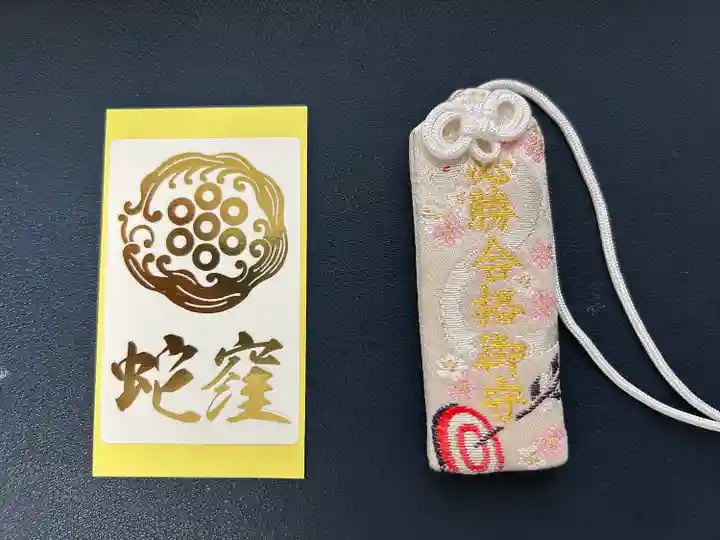 蛇窪
必勝合格御守